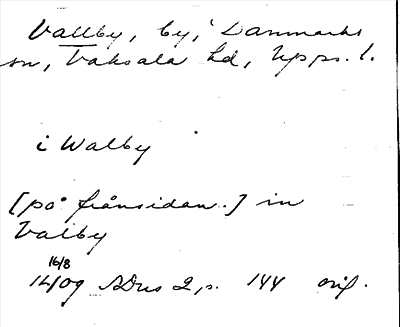 Vallby, by, i Danmarks
sn, Vaksala hd, Upps. l.
i Walby
[på frånsidan.] in
Valby
16/8
1409 SDns 2, s. 144 orig.